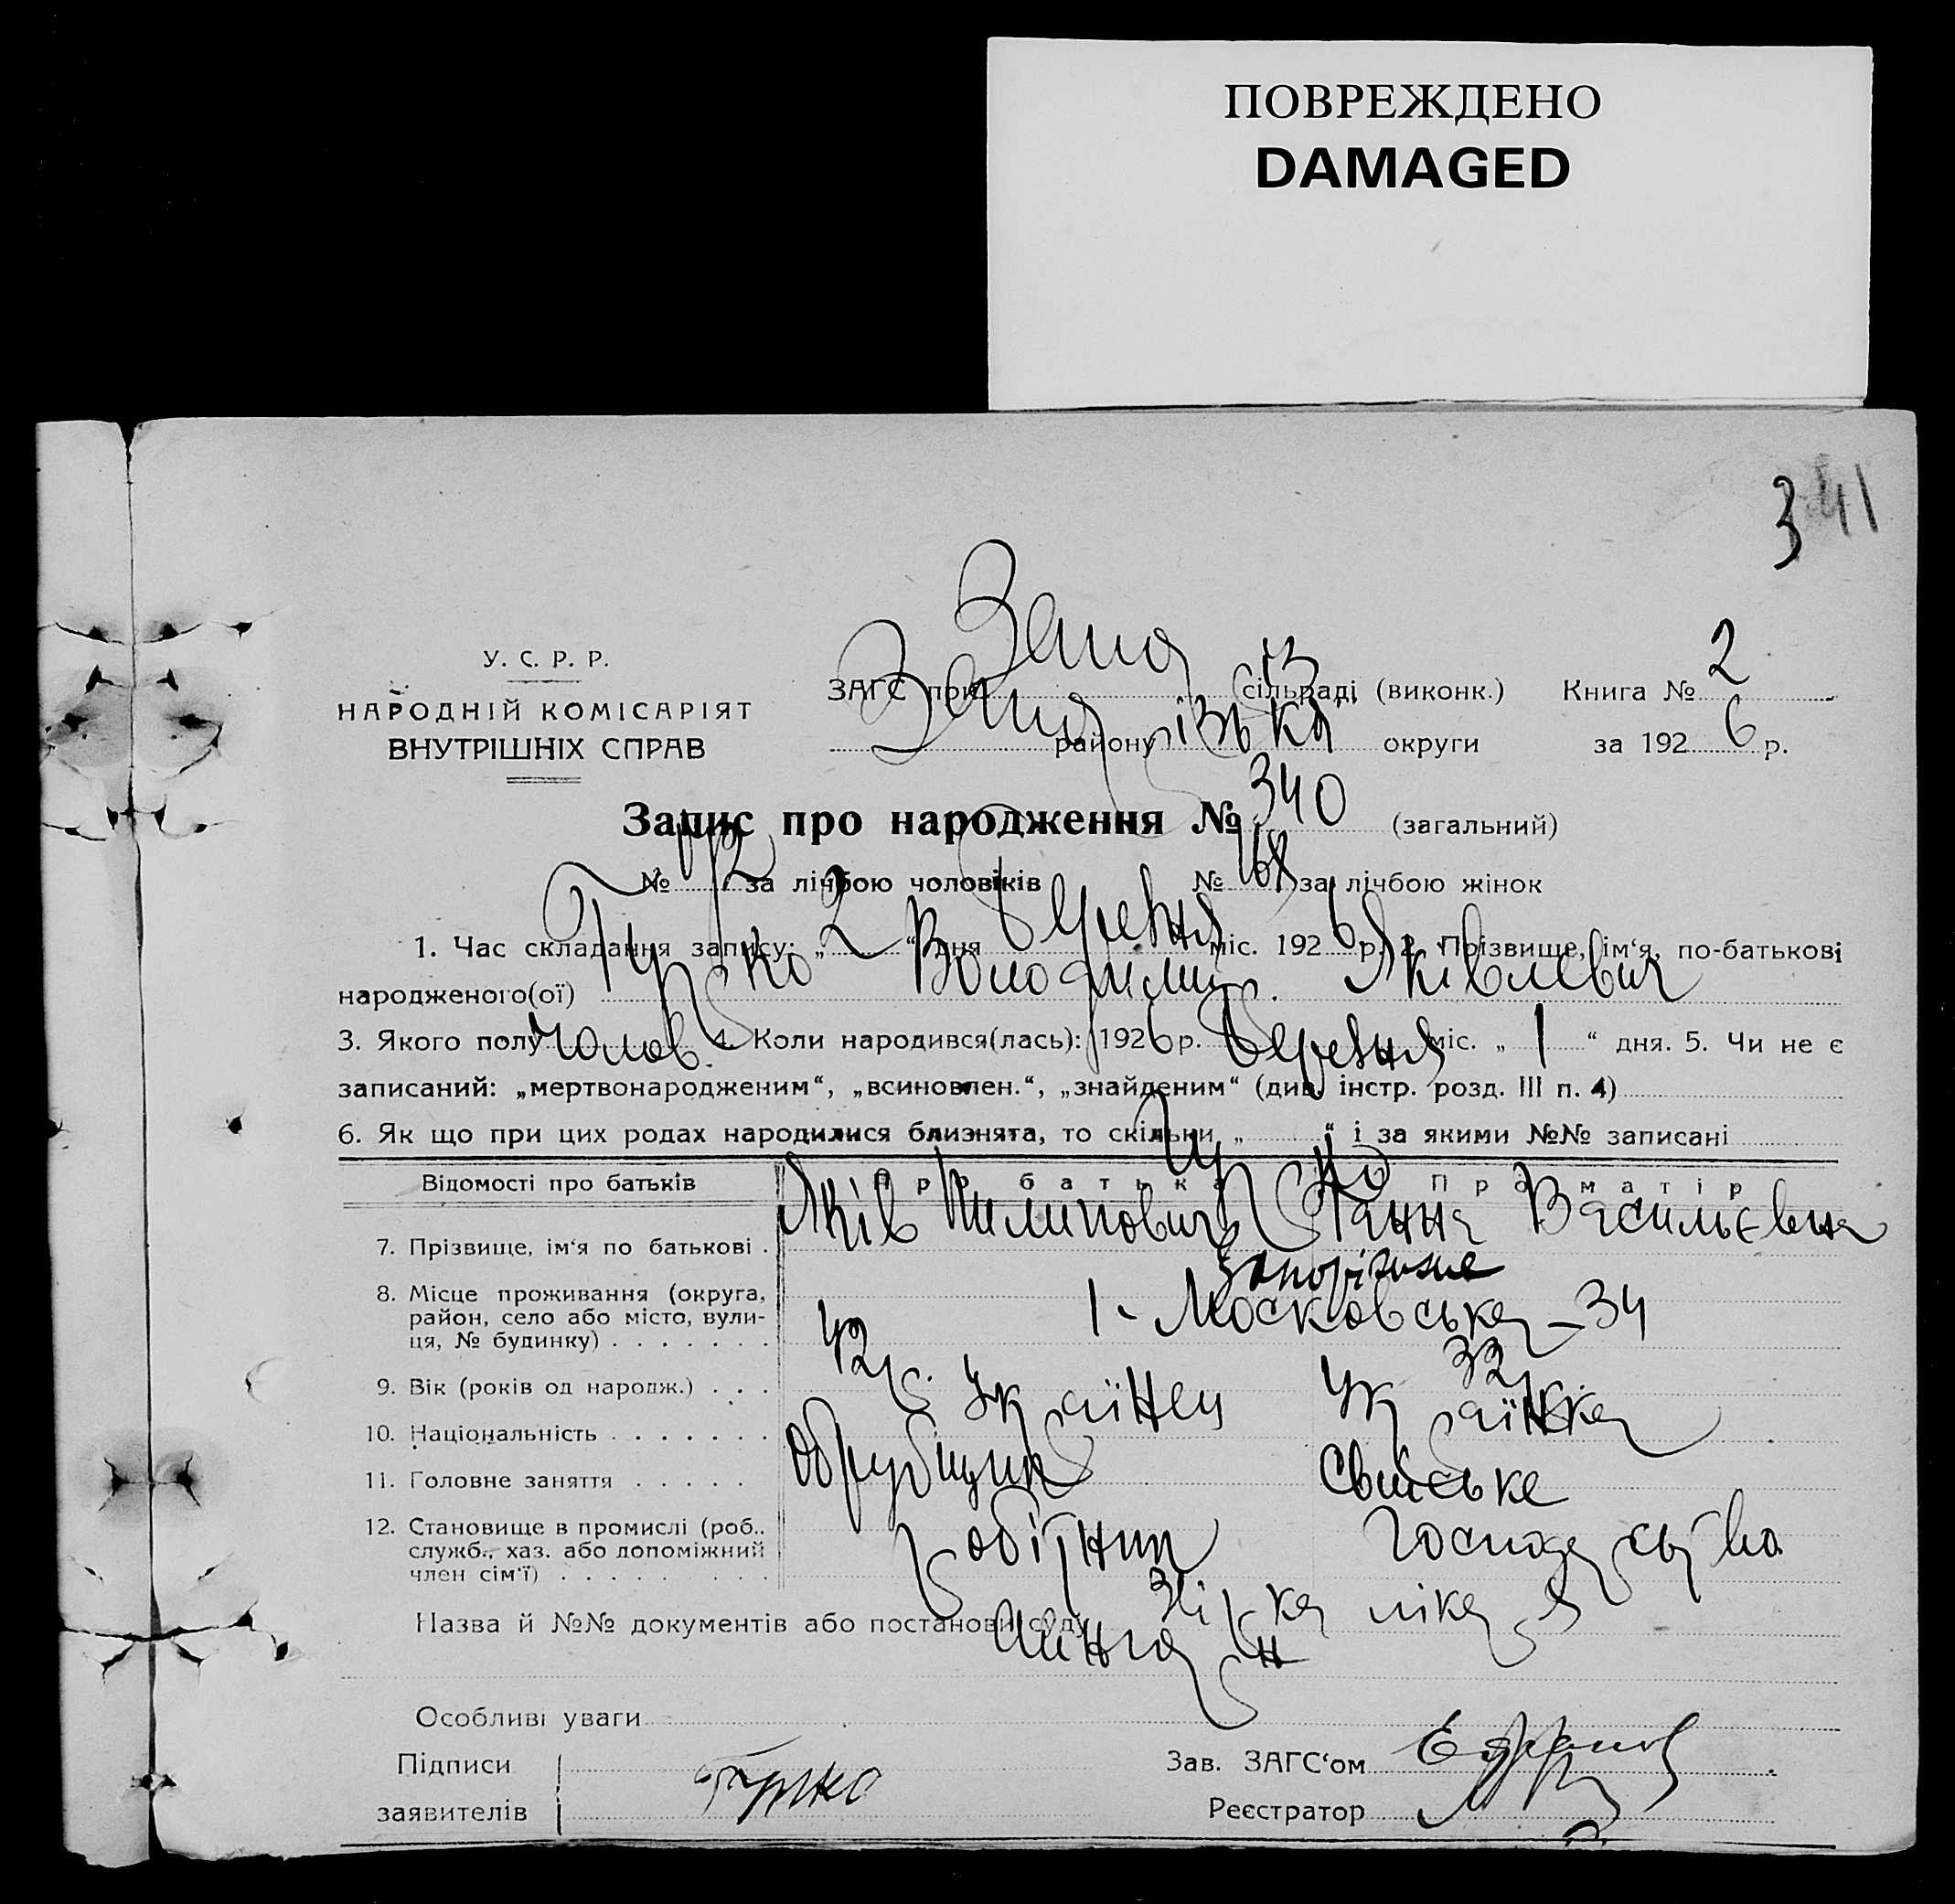 ПОВРЕЖДЕНО
DAMAGED
341
У. С. Р. Р.
НАРОДНІЙ КОМІСАРІЯТ
ВНУТРІШНІХ СПРАВ
ЗАГС при сільраді (виконк.) Книга № 2
району округи за 1926 р.
Запис про народження № 340 (загальний)
№ 172 за лічбою чоловіків № 168 за лічбою жінок
1. Час складання запису: „2“ дня березня міс. 1926 р. 2. Прізвище, ім‘я, по-батькові
народженого(ої) Гурко Володимир Яківлевич
3. Якого полу Чолов. 4. Коли народився(лась): 1926 р. березня міс. „1“ дня. 5. Чи не є
записаний: „мертвонародженим“, „всиновлен.“, „знайденим“ (див. інстр. розд. III п. 4)
6. Як що при цих родах народилися близнята, то скільки „ “ і за якими №№ записані
Відомості про батьків Про батька Про матір
7. Прізвище, ім‘я по батькові . Яків Пилипович Ганна Васильєвна
8. Місце проживання (округа,
район, село або місто, вули-
ця, № будинку) . . . . . . . Запоріжжє 1- Московська - 34
9. Вік (років од народж.) . . . 42 р. 32 р.
10. Національність . . . . . . . Українец Українка
11. Головне заняття . . . . . Обрубщик Свійське
12. Становище в промислі (роб..
служб., хаз. або допоміжний
член сім‘ї) . . . . . . . . . робітник господарство
Назва й №№ документів або постанови суду лікаря
Особливі уваги
Підписи
заявителів Гурко
Зав. ЗАГС‘ом
Реєстратор